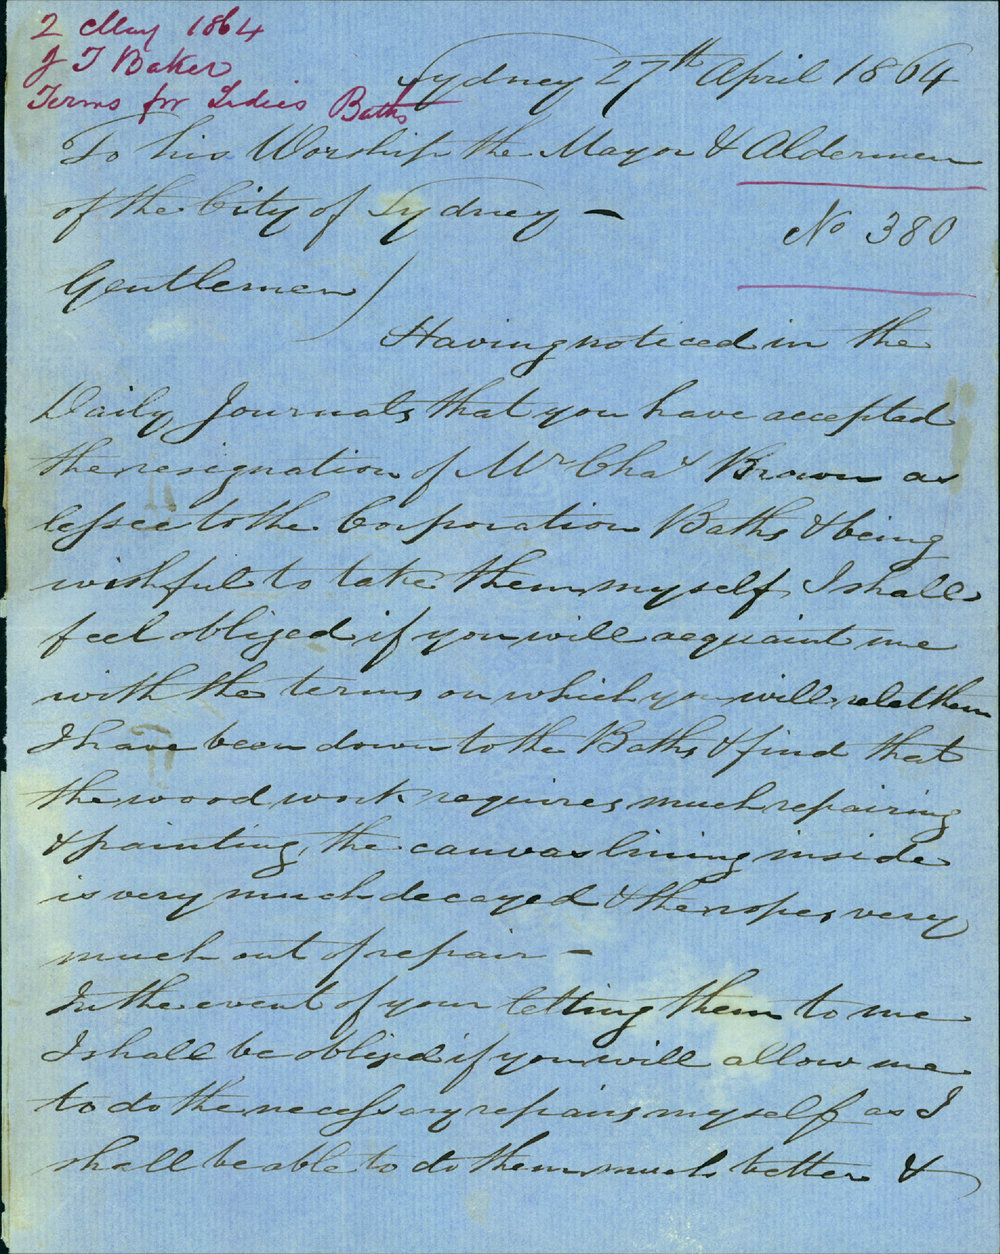 2 May 1864
J T Baker
Terms for Ladies Baths
Sydney 27th April 1864
To his Worship the Mayor & Aldermen
of the City of Sydney –
No 380
Gentlemen
Having noticed in the
Daily Journals, that you have accepted
the resignation of Mr Chas Brown as
lessee to the Corporation Baths & being
wishful to take them myself, I shall
feel obliged if you will acquaint me
with the terms on which you will relet them
I have been down to the Baths & find that
the wood work requires much repairing
& painting, the canvas lining inside
is very much decayed & the ropes very
much out of repair –
In the event of your letting them to me
I shall be obliged if you will allow me
to do the necessary repairs myself as I
shall be able to do them much better &